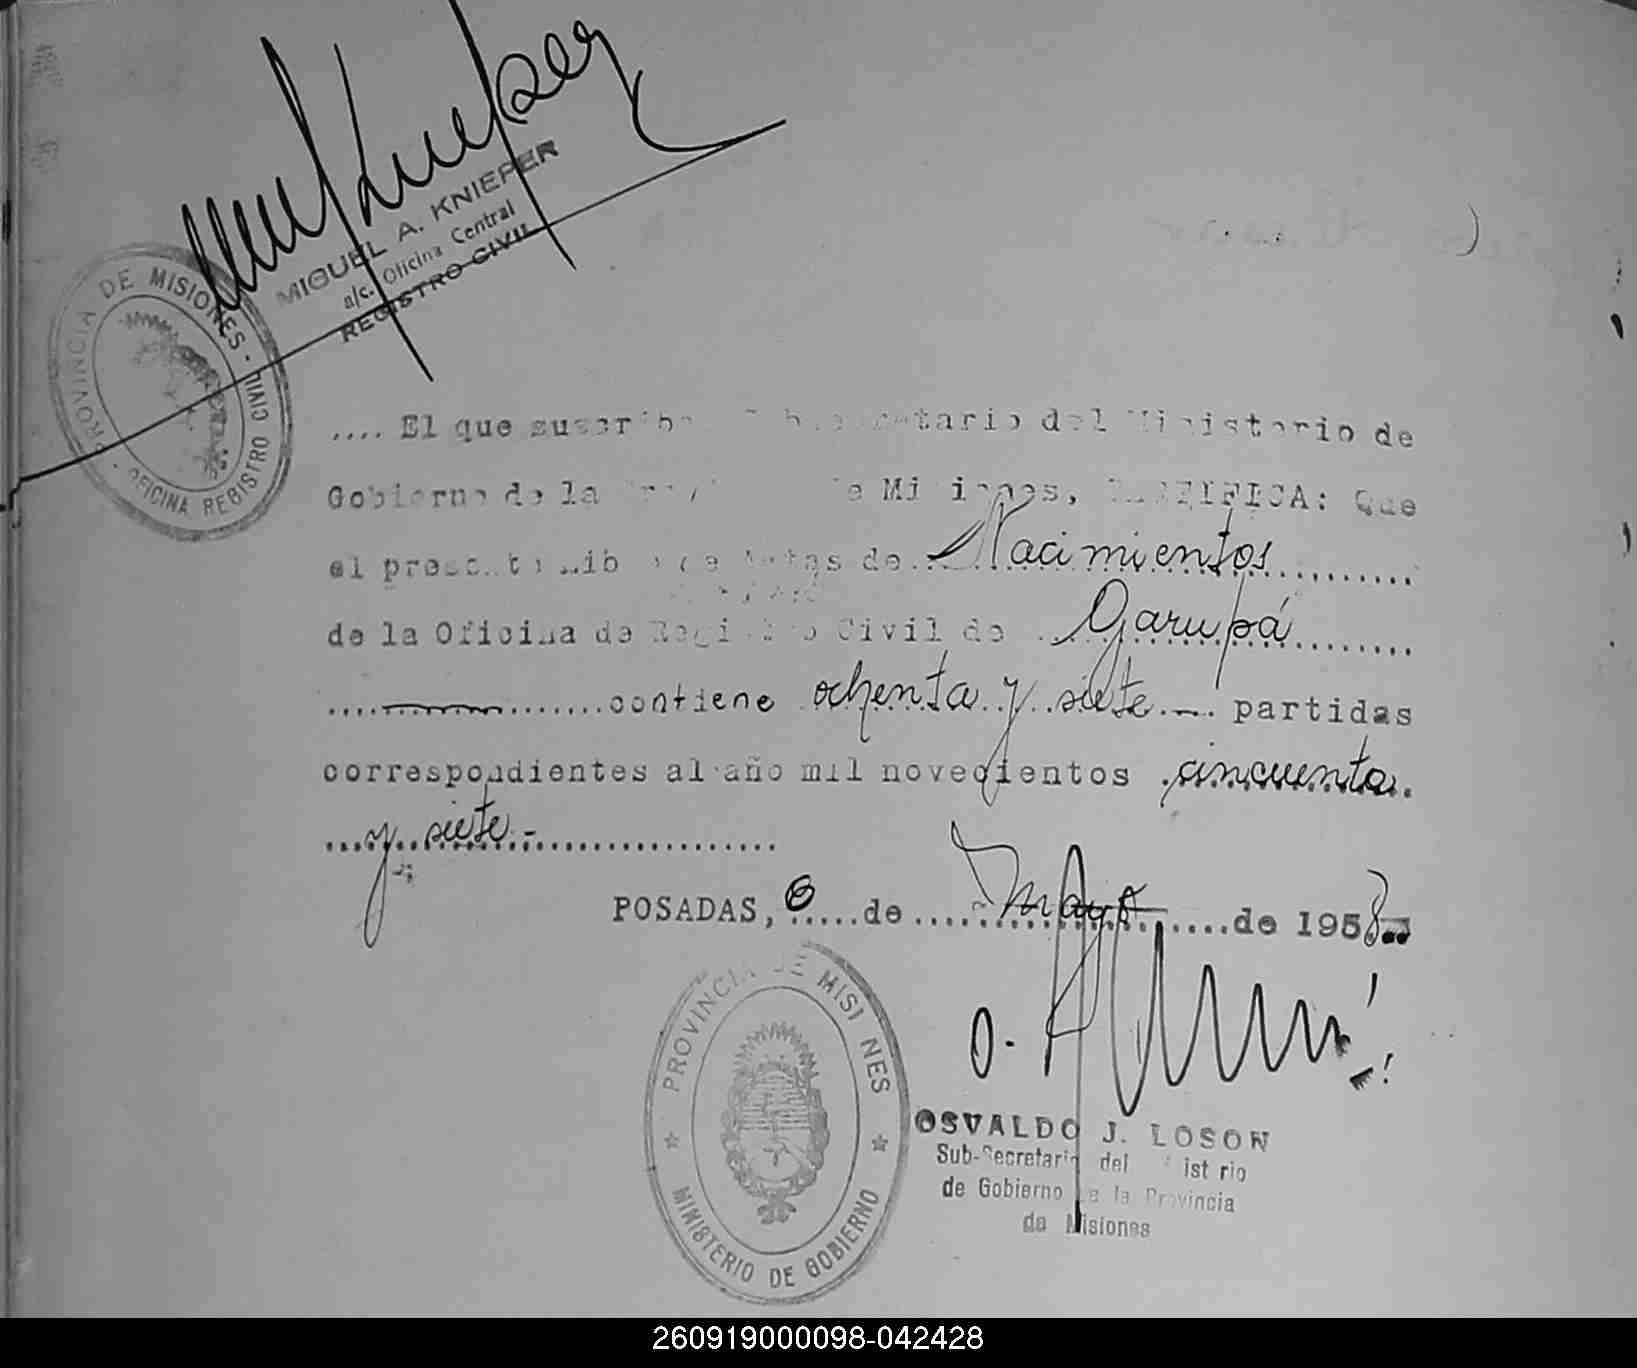 MIGUEL A. KNIEPER
a/c. Oficina Central
REGISTRO CIVIL
PROVINCIA DE MISIONES - OFICINA REGISTRO CIVIL -
.... El que suscribe Subsecretario del Ministerio de
Gobierno de la Provincia de Misiones, CERTIFICA: Que
el presente Libro de Actas de Nacimientos
de la Oficina de Registro Civil de Garupá
contiene ochenta y siete partidas
correspondientes al año mil novecientos cincuenta
y siete.-
POSADAS, 6 de Mayo de 1958
PROVINCIA DE MISIONES
MINISTERIO DE GOBIERNO
OSVALDO J. LOSON
Sub-Secretario del Ministerio
de Gobierno de la Provincia
de Misiones
260919000098-042428